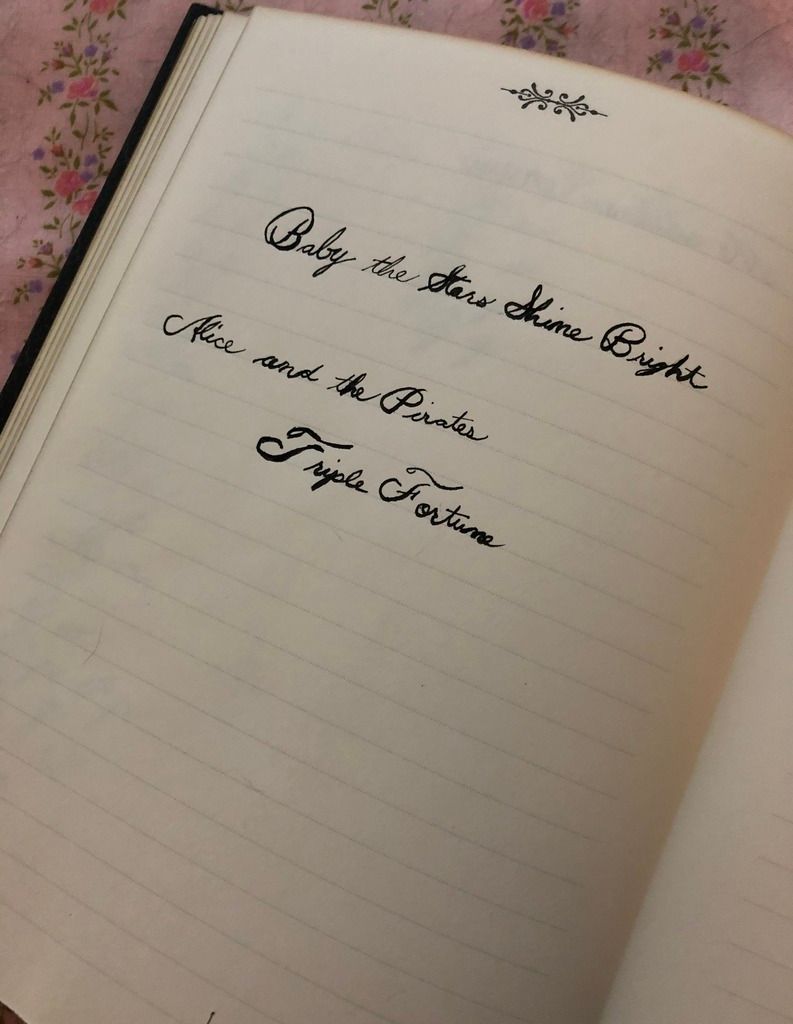 Baby the Stars Shine Bright
Alice and the Pirates
Triple Fortune